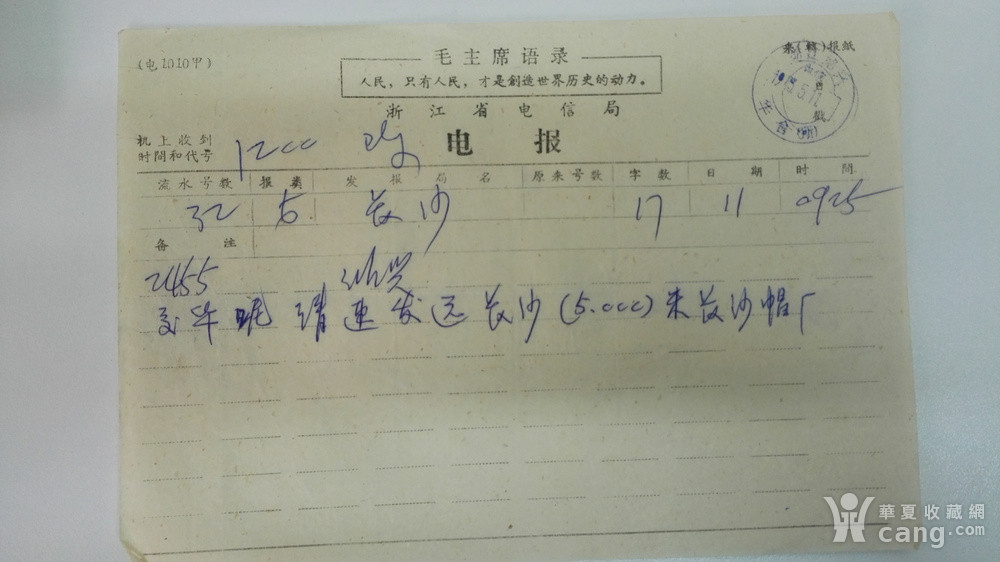 (电1010甲)
毛主席语录
来(转)报纸
人民，只有人民，才是創造世界历史的动力。
浙江省电信局
机上收到
时間和代号
1200
电报
流水号数 报类 发报局名 原来号数 字数 日期 时間
32 5 长沙 17 11 0925
备註
2455
绍兴
请速发运长沙(5.000)来长沙帽厂
華夏收藏網
cang.com